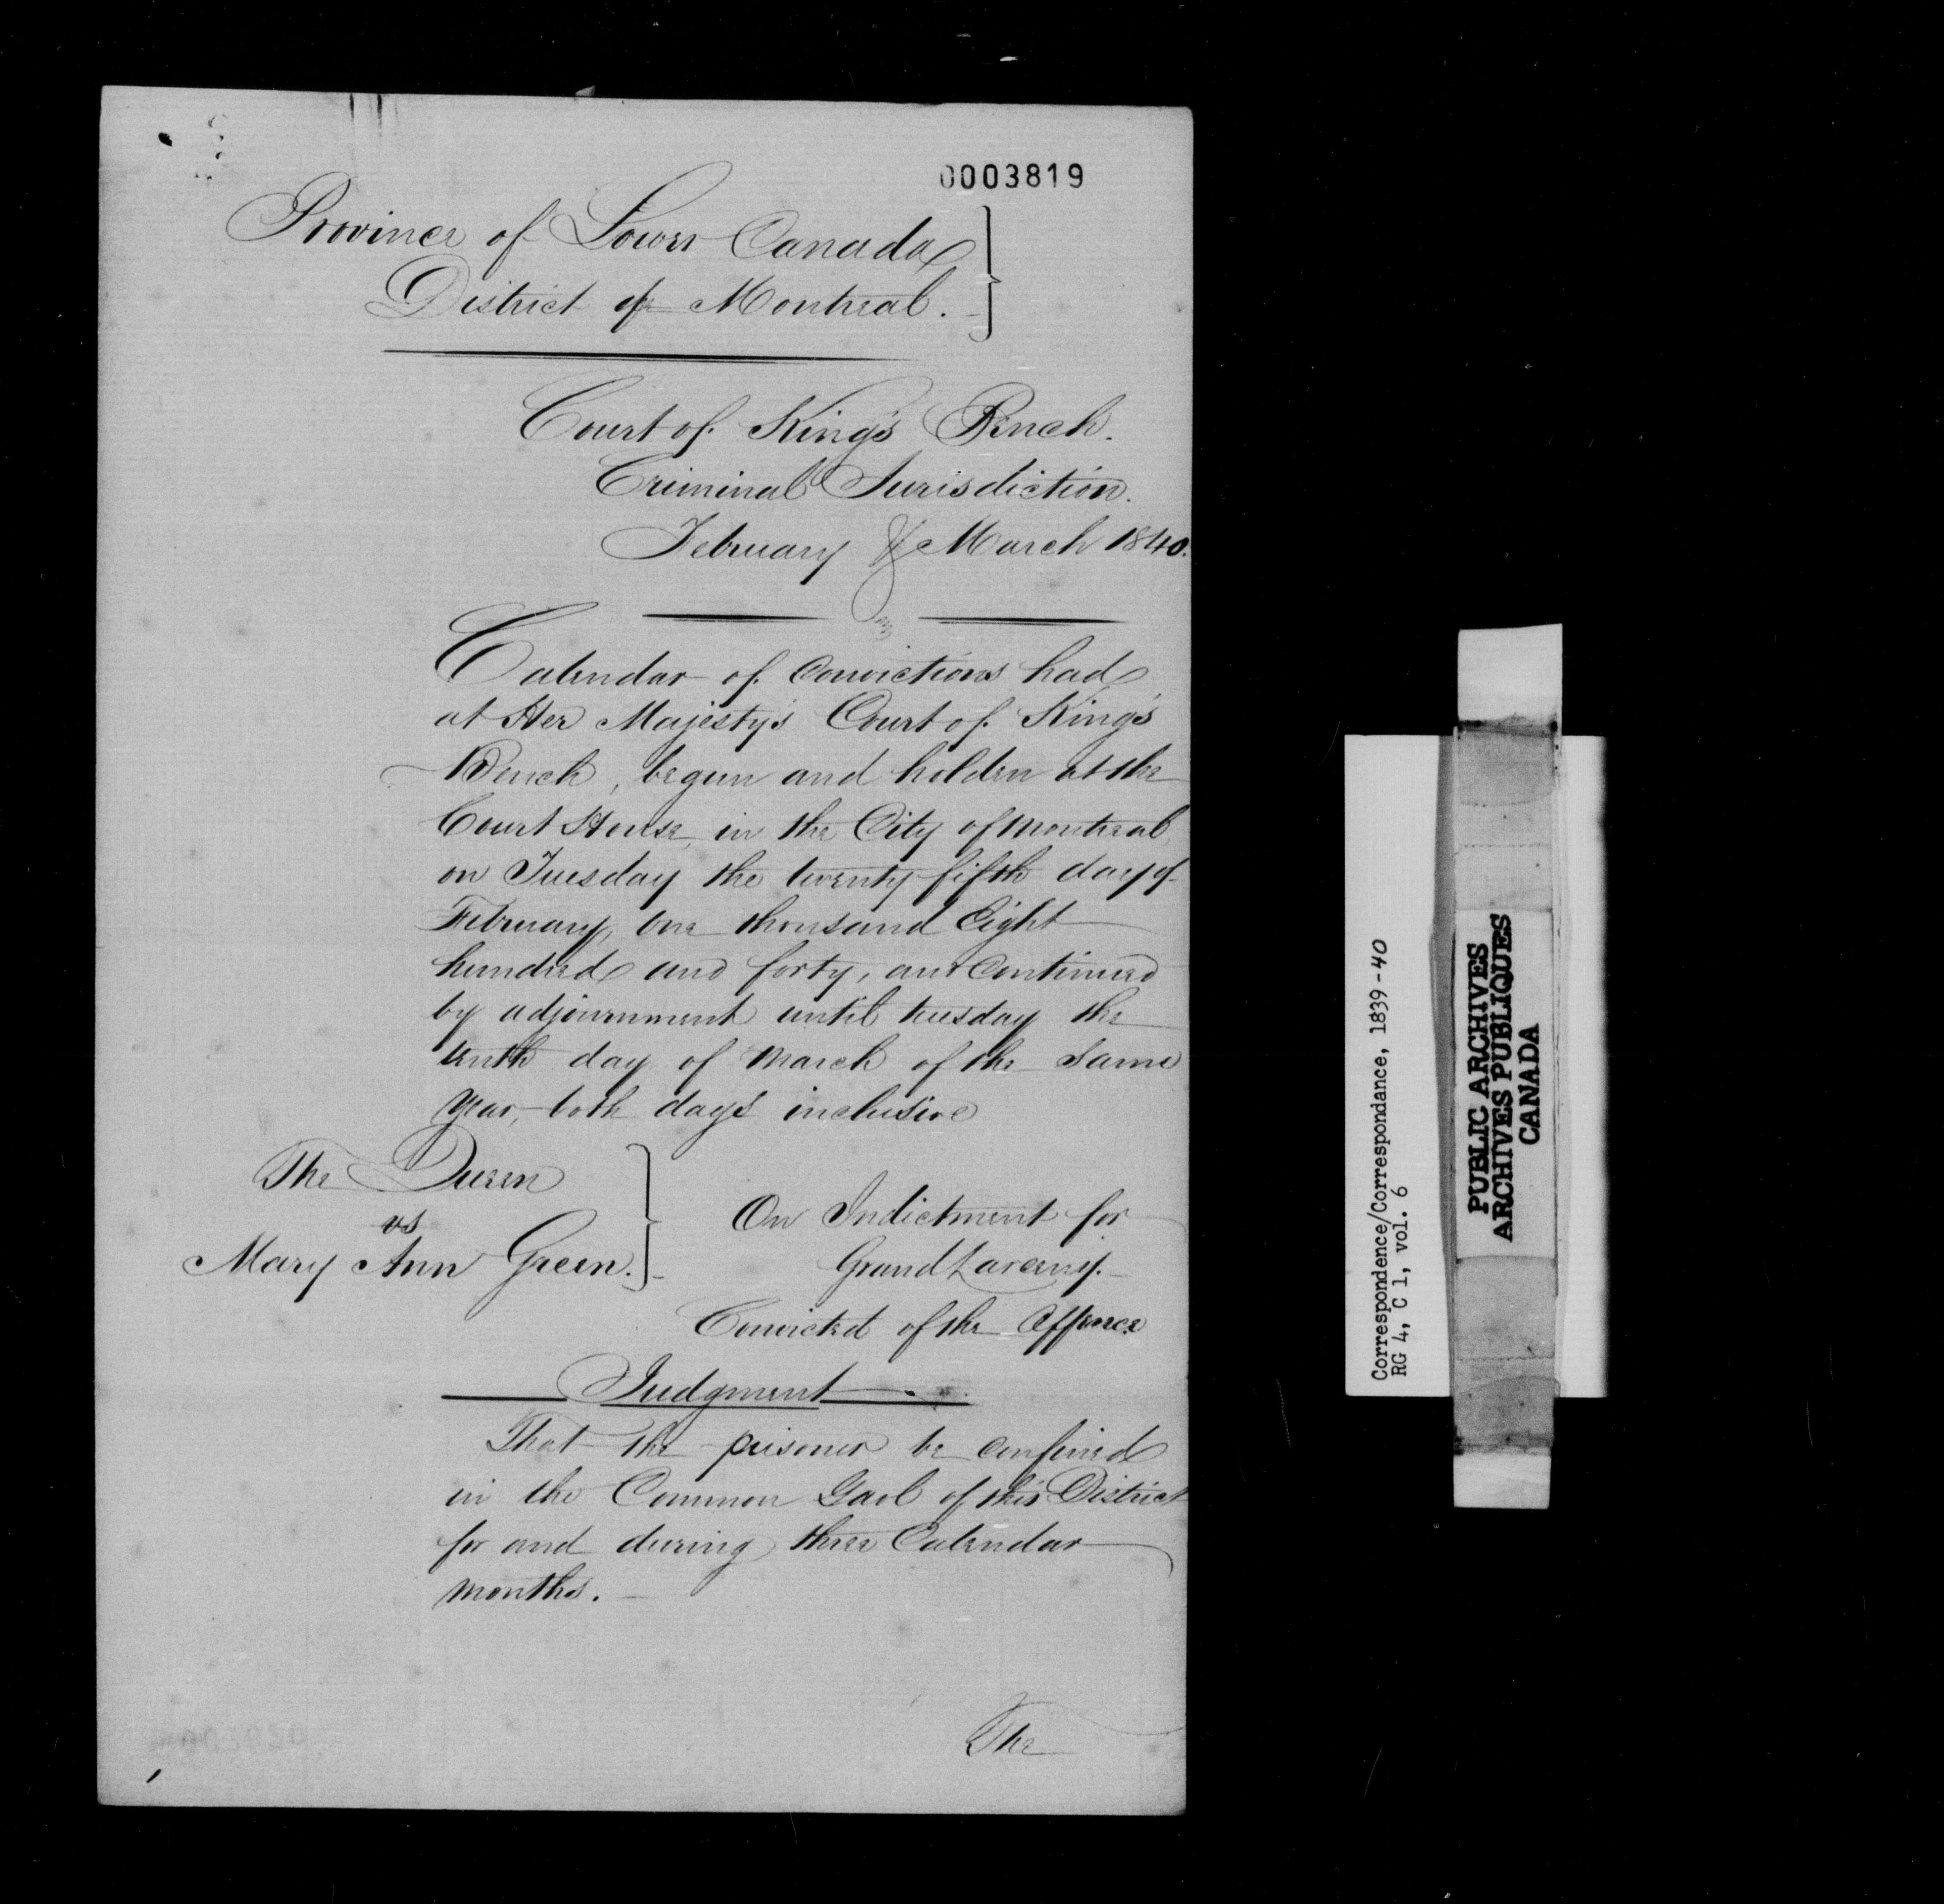 0003819
Province of Lower Canada
District of Montreal.
Court of King's Bench.
Criminal Jurisdiction.
February & March 1840.
Calendar of Convictions had
at Her Majesty's Court of King's
Bench, begun and holden at the
Court House, in the City of Montreal,
on Tuesday the twenty fifth day of
February, one thousand Eight
hundred and forty, and Continued
by adjournment until tuesday the
tenth day of March of the Same
Year, both days inclusive
The Queen
vs
Mary Ann Green.
On Indictment for
Grand Larceny.
Convicted of the Offence
Judgment
That the prisoner be confined
in the Common Gaol of this District
for and during three Calendar
Months.
The
Correspondence/Correspondance, 1839-40
RG 4, C 1, vol. 6
PUBLIC ARCHIVES
ARCHIVES PUBLIQUES
CANADA